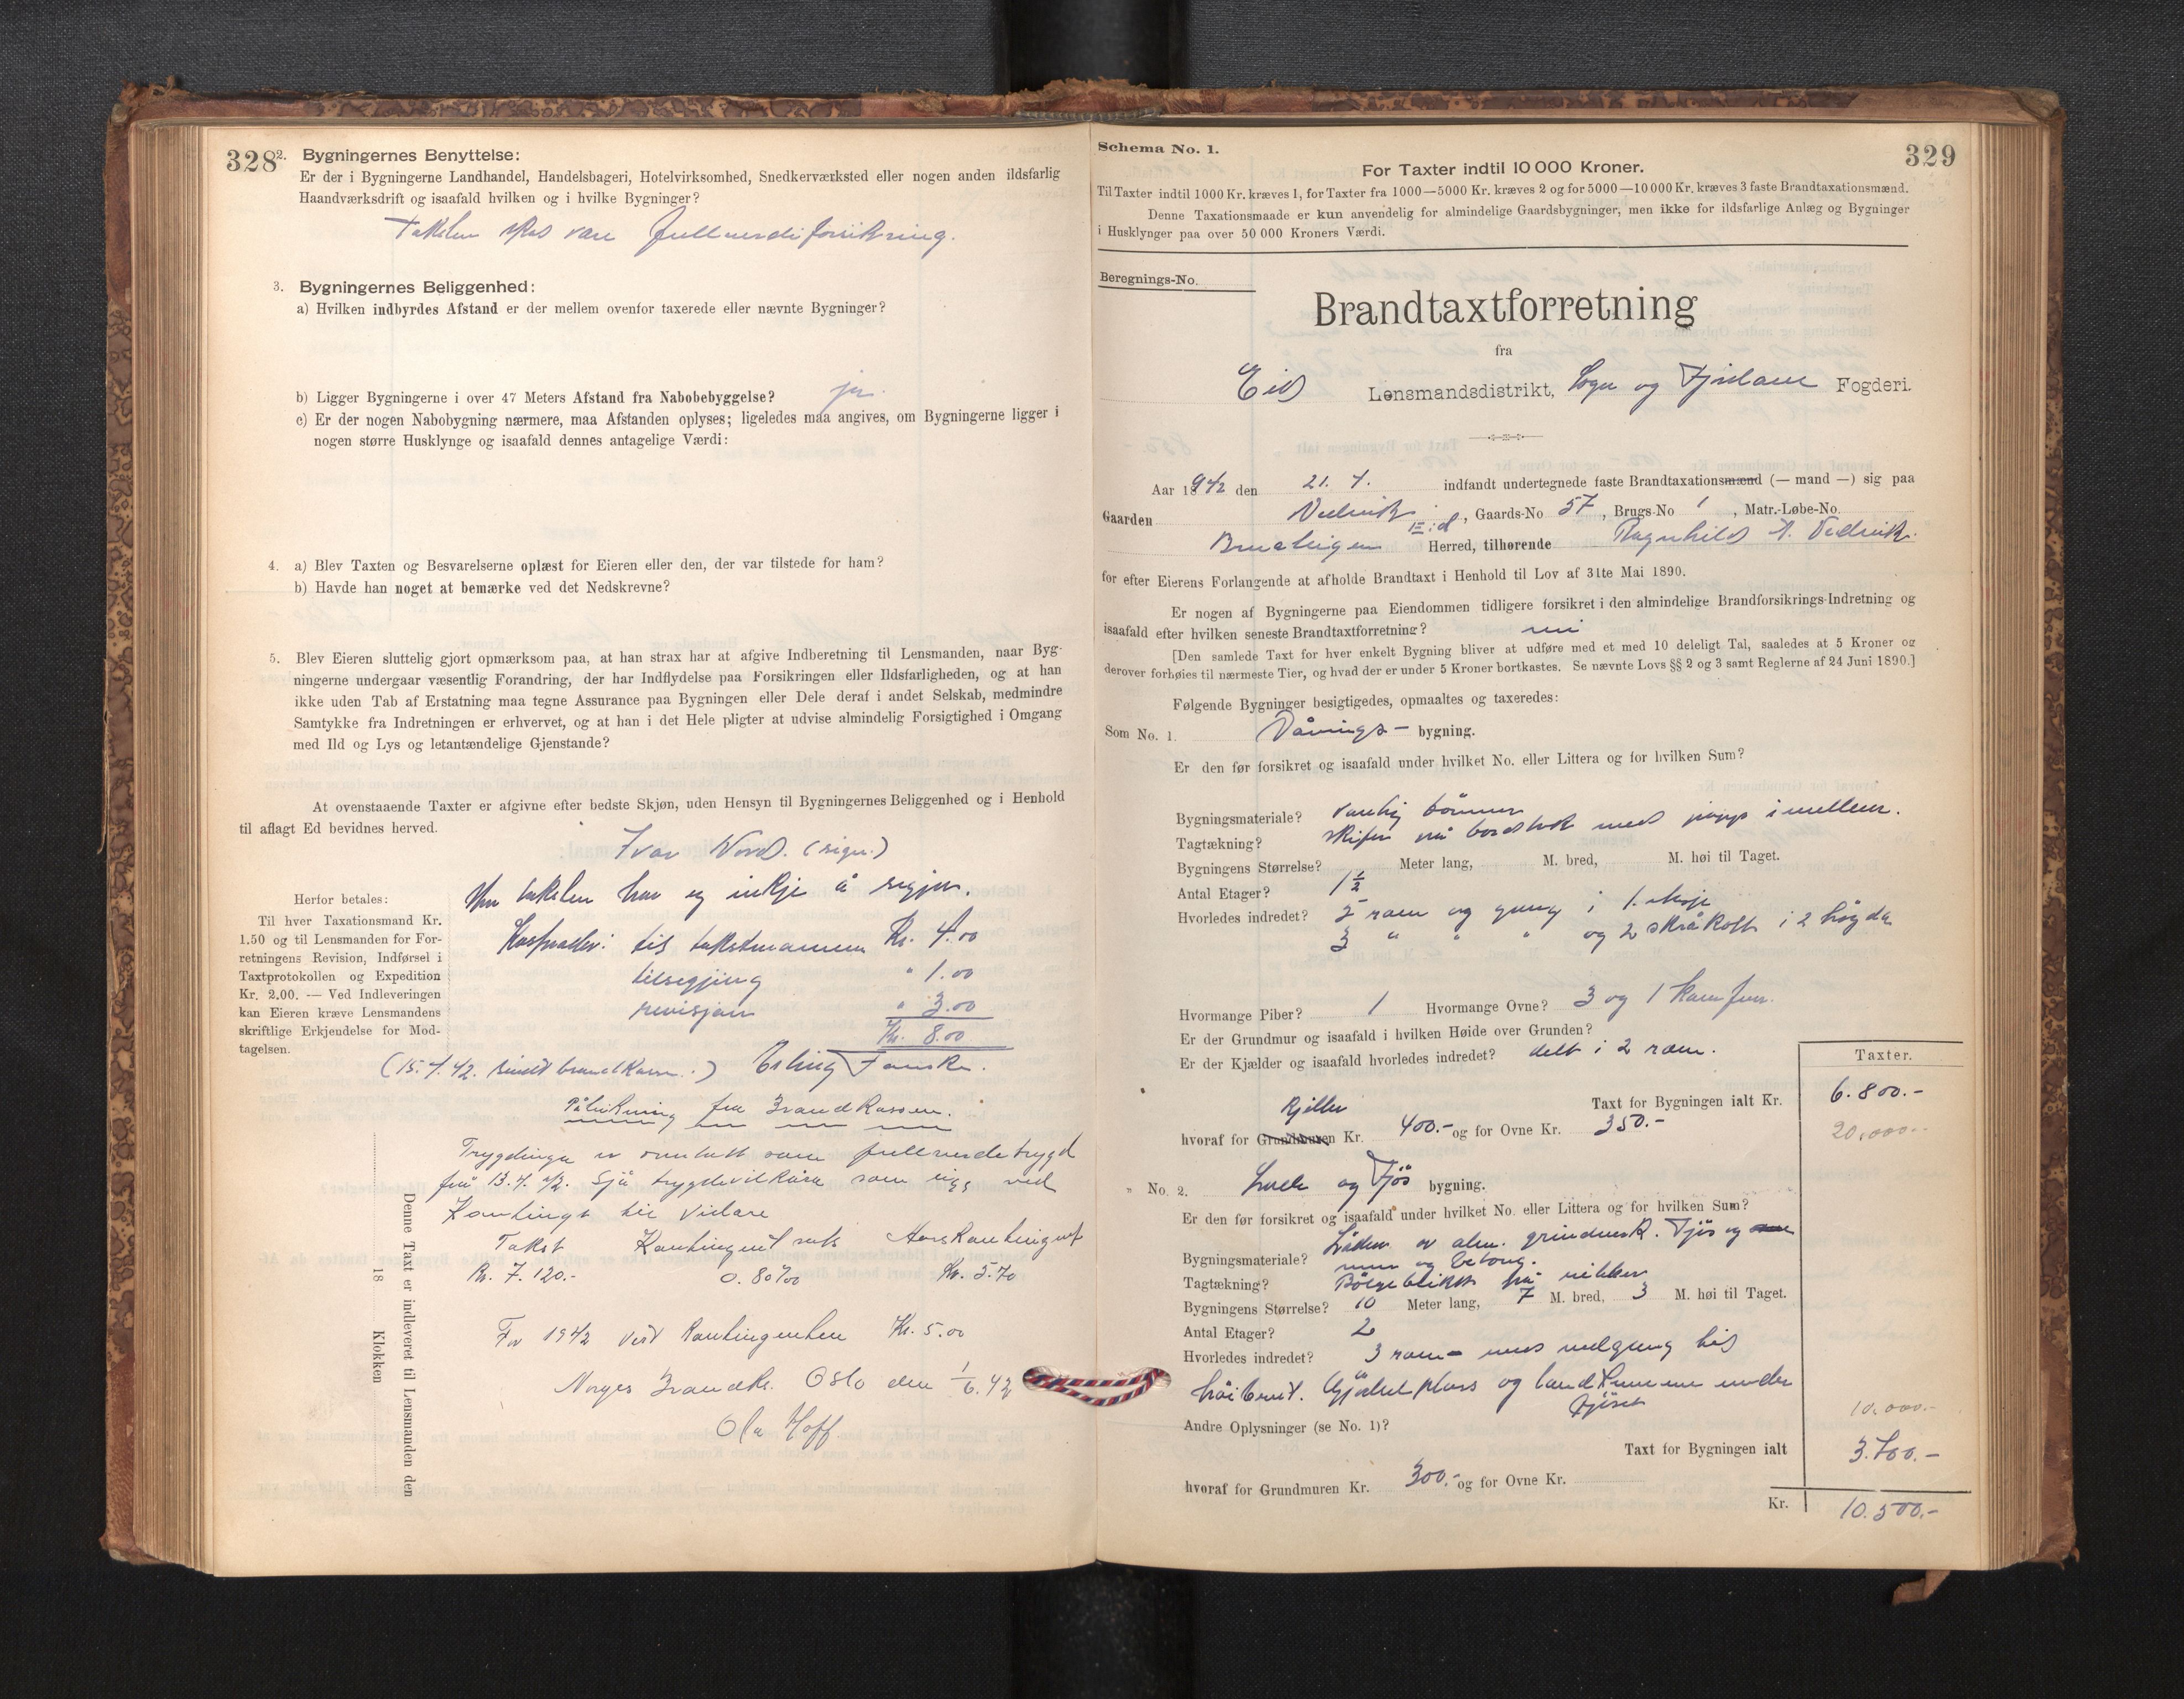 328
2. Bygningernes Benyttelse:
Er der i Bygningerne Landhandel, Handelsbageri, Hotelvirksomhed, Snedkerværksted eller nogen anden ildsfarlig
Haandværksdrift og isaafald hvilken og i hvilke Bygninger?
Taksten skal vare fullverdiforsikring.
3. Bygningernes Beliggenhed:
a) Hvilken indbyrdes Afstand er der mellem ovenfor taxerede eller nævnte Bygninger?
b) Ligger Bygningerne i over 47 Meters Afstand fra Nabobebyggelse? ja.
c) Er der nogen Nabobygning nærmere, maa Afstanden oplyses; ligeledes maa angives, om Bygningerne ligger i
nogen større Husklynge og isaafald dennes antagelige Værdi:
4. a) Blev Taxten og Besvarelserne oplæst for Eieren eller den, der var tilstede for ham?
b) Havde han noget at bemærke ved det Nedskrevne?
5. Blev Eieren sluttelig gjort opmærksom paa, at han strax har at afgive Indberetning til Lensmanden, naar Byg-
ningerne undergaar væsentlig Forandring, der har Indflydelse paa Forsikringen eller Ildsfarligheden, og at han
ikke uden Tab af Erstatning maa tegne Assurance paa Bygningen eller Dele deraf i andet Selskab, medmindre
Samtykke fra Indretningen er erhvervet, og at han i det Hele pligter at udvise almindelig Forsigtighed i Omgang
med Ild og Lys og letantændelige Gjenstande?
At ovenstaaende Taxter er afgivne efter bedste Skjøn, uden Hensyn til Bygningernes Beliggenhed og i Henhold
til aflagt Ed bevidnes herved.
Ivar Nord. (sign.)
Herfor betales:
Til hver Taxationsmand Kr.
1.50 og til Lensmanden for For-
retningens Revision, Indførsel i
Taxtprotokollen og Expedition
Kr. 2.00. — Ved Indleveringen
kan Eieren kræve Lensmandens
skriftlige Erkjendelse for Mod-
tagelsen.
taksten har eg inkje å segja.
Kostnader: til takstmannen Kr. 4.00
tilsegjing " 1.00
revisjon " 3.00
Kr. 8.00
(15.4.42. sendt brandkassen.) Erling
Påteikning fra Brandkassen.
Trygdinga er omlatt som fullverdetrygd
frå 13.4. 42. Sjå trygdevilkåra som ligg ved
til vidare
Takst Kontingent sats Aarskontingent
Kr. 7.120.- 0.80‰ Kr. 5.70
For 1942 vert kontingenten Kr. 5.00
Norges Brandk. Oslo den 1/6.42
Ola Hoff
Denne Taxt er indleveret til Lensmanden den
18 Klokken
329
Schema No. 1.
For Taxter indtil 10 000 Kroner.
Til Taxter indtil 1000 Kr. kræves 1, for Taxter fra 1000—5000 Kr. kræves 2 og for 5000—10 000 Kr. kræves 3 faste Brandtaxationsmænd.
Denne Taxationsmaade er kun anvendelig for almindelige Gaardsbygninger, men ikke for ildsfarlige Anlæg og Bygninger
i Husklynger paa over 50 000 Kroners Værdi.
Beregnings-No.
Brandtaxtforretning
fra
Eid Lensmandsdistrikt, Sogn og Fjordane Fogderi.
Aar 1942 den 21. 4. indfandt undertegnede faste Brandtaxationsmænd (— mand —) sig paa
Gaarden Vedvik, Gaards-No 57, Brugs-No 1, Matr.-Løbe-No.
Eid Herred, tilhørende Ragnhild A. Vedvik.
for efter Eierens Forlangende at afholde Brandtaxt i Henhold til Lov af 31te Mai 1890.
Er nogen af Bygningerne paa Eiendommen tidligere forsikret i den almindelige Brandforsikrings-Indretning og
isaafald efter hvilken seneste Brandtaxtforretning? nei
[Den samlede Taxt for hver enkelt Bygning bliver at udføre med et med 10 deleligt Tal, saaledes at 5 Kroner og
derover forhøies til nærmeste Tier, og hvad der er under 5 Kroner bortkastes. Se nævnte Lovs §§ 2 og 3 samt Reglerne af 24 Juni 1890.]
Følgende Bygninger besigtigedes, opmaaltes og taxeredes:
Som No. 1. Vånings- bygning.
Er den før forsikret og isaafald under hvilket No. eller Littera og for hvilken Sum?
Bygningsmateriale? vanlig tømmer
Tagtækning? skifer på bordtak med papp imellem.
Bygningens Størrelse? Meter lang, M. bred, M. høi til Taget.
Antal Etager? 1½
Hvorledes indredet? 5 rom og gang i 1. høgd
3 " " " og 2 skråkott i 2 høgda
Hvormange Piber? 1 Hvormange Ovne? 3 og 1 komfur.
Er der Grundmur og isaafald i hvilken Høide over Grunden?
Er der Kjælder og isaafald hvorledes indredet? delt i 2 rom.
Taxter.
Taxt for Bygningen ialt Kr. 6.800.-
20.000.-
Kjeller
hvoraf for Grundmuren Kr. 400.- og for Ovne Kr. 350.-
" No. 2. Løde og Fjös bygning.
Er den før forsikret og isaafald under hvilket No. eller Littera og for hvilken Sum?
Bygningsmateriale? Löden av alm. grindverk. Fjös og
mur og betong.
Tagtækning? Bölgeblikk på
Bygningens Størrelse? 10 Meter lang, 7 M. bred, 3 M. høi til Taget.
Antal Etager? 2
Hvorledes indredet? 3 rom med nedgang til
og landkummene under
fjöset
10.000.-
Andre Oplysninger (se No. 1)?
Taxt for Bygningen ialt 3.700.-
hvoraf for Grundmuren Kr. 300.- og for Ovne Kr.
Kr. 10.500.-